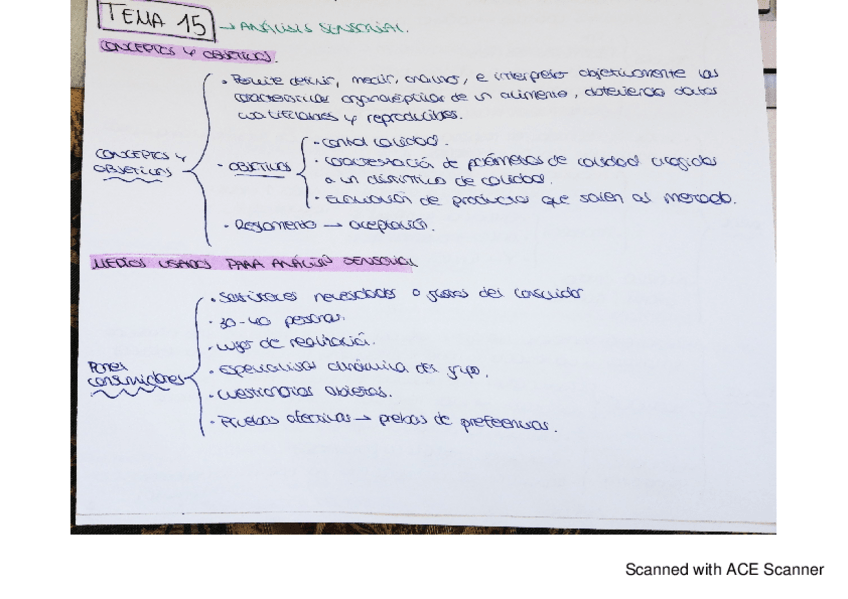 TEMA 15 → ANÁLISIS SENSORIAL.
CONCEPTOS Y OBJETIVOS.
· Permite definir, medir, analizar, e interpretar objetivamente las
características organolépticas de un alimento, obteniendo datos
cuantificables y reproducibles.
CONCEPTOS Y
OBJETIVOS
· OBJETIVOS
· control calidad.
· constatación de parámetros de calidad acogidos
a un distintivo de calidad.
· Evaluación de productos que salen al mercado.
· Reglamento → aceptación.
MEDIOS USADOS PARA ANÁLISIS SENSORIAL
· Satisfacer necesidades o gustos del consumidor
· 30-40 personas.
· lugar de realización.
Panel
consumidores
· Especialistas dinámica del grupo.
· cuestionarios abiertos.
· Pruebas afectivas → prebas de preferencias.
Scanned with ACE Scanner